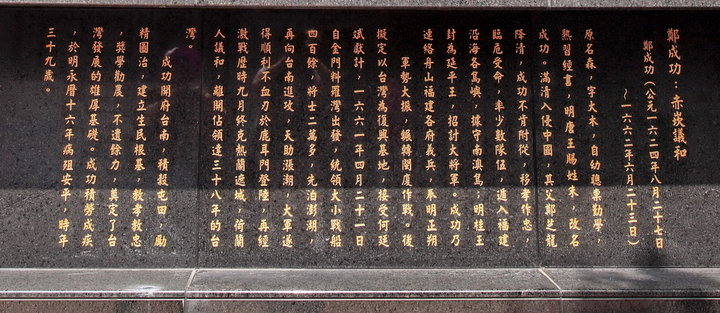 鄭成功：赤崁議和
鄭成功（公元一六二四年八月二十七日
～一六六二年六月二十三日）
原名森，字大木，自幼聰棐勤學，
熟習經書，明唐王賜姓朱，改名
成功。滿清入侵中國，其父鄭芝龍
降清，成功不肯附從，移孝作忠，
臨危受命，率少數隊伍，遁入福建
沿海各島嶼，據守南澳島，明桂王
封為延平王，招討大將軍，成功乃
連絡舟山福建各府義兵，奉明正朔
，軍勢大振，輾轉閩廈作戰。後
斌獻計，一六六一年四月二十一日
擬定以台灣為復興基地，接受何廷
自金門料羅灣出發，統領大小戰船
四百餘，將士二萬多，先泊澎湖，
再向台南進攻，天助漲潮，大軍遂
得順利不血刃於鹿耳門登陸，再經
激戰歷時九月終克熱蘭遮城，荷蘭
人議和，離開佔領達三十八年的台
灣。
成功開府台南，積穀屯田，勵
精圖治，建立生民根基，教孝教忠
，獎學勸農，不遺餘力，奠定了台
灣發展的雄厚基礎。成功積勞成疾
，於明永曆十六年病殂安平，時年
三十九歲。